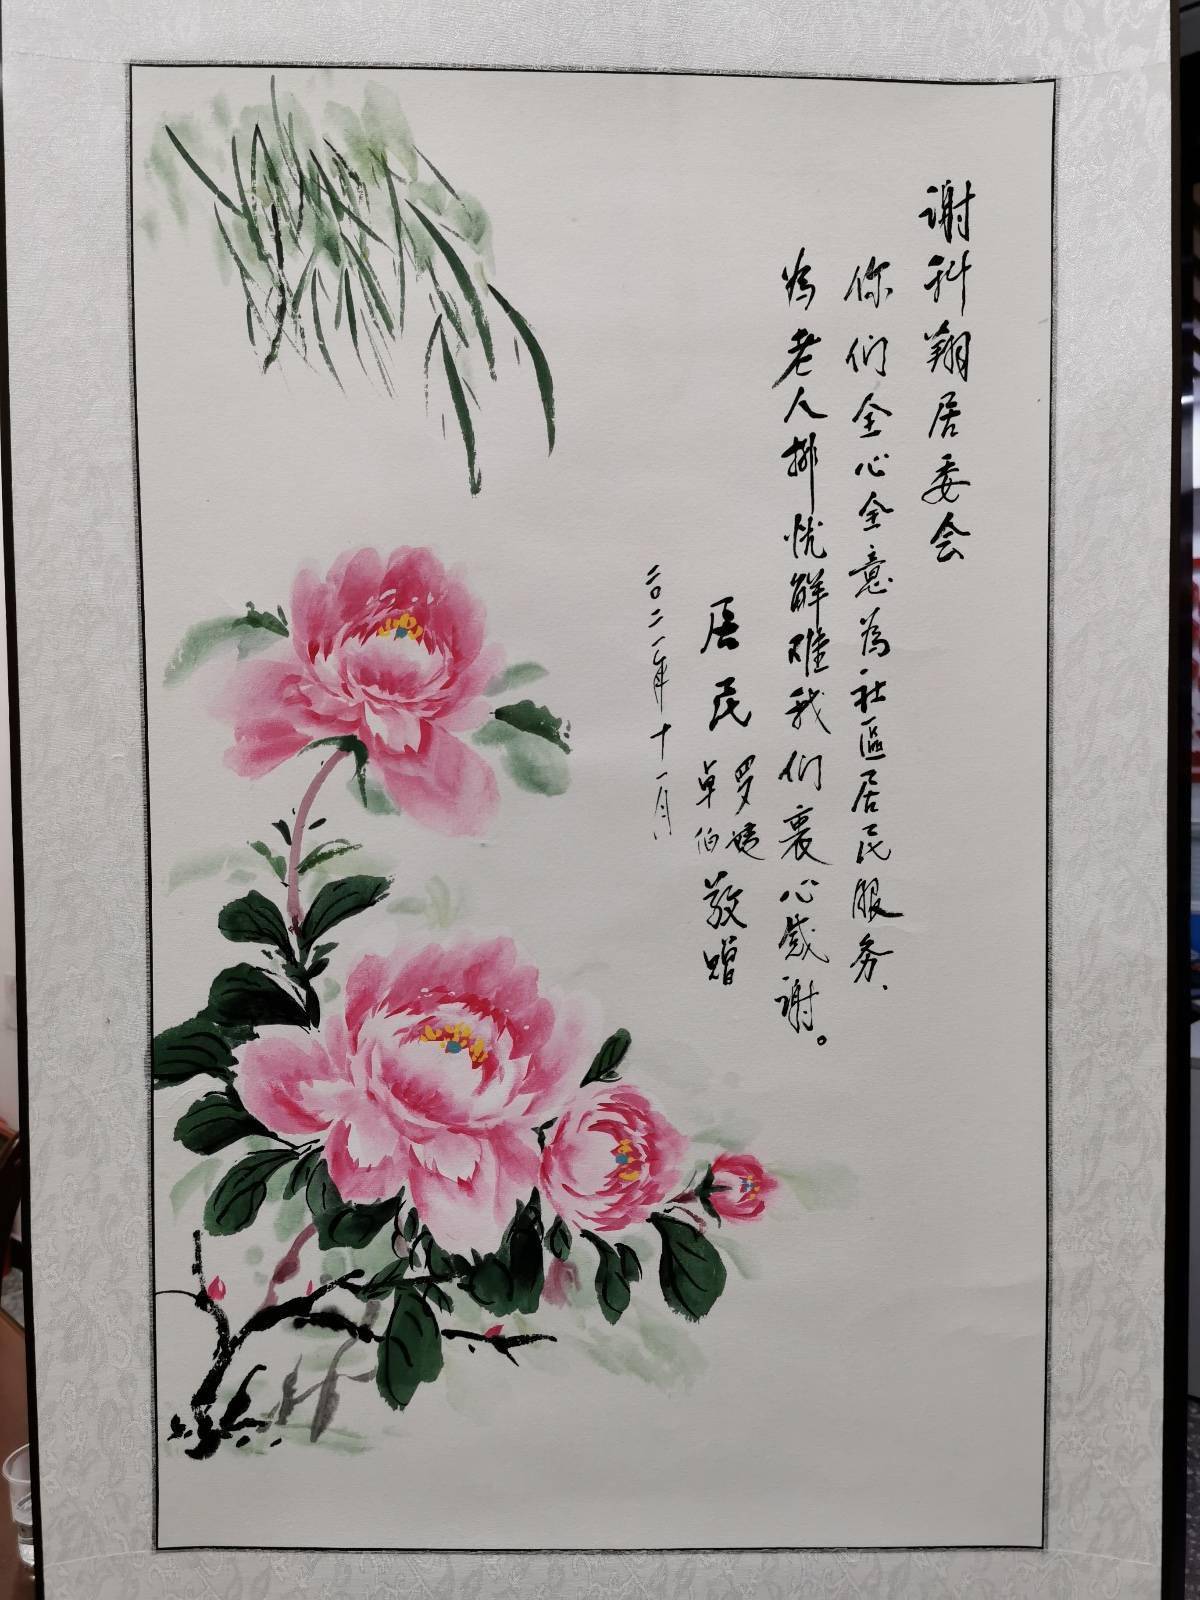 谢科翔居委会
你们全心全意為社區居民服务、
為老人排忧解难我们衷心感谢。
居民 罗姨 卓伯 敬赠
二〇二一年十一月